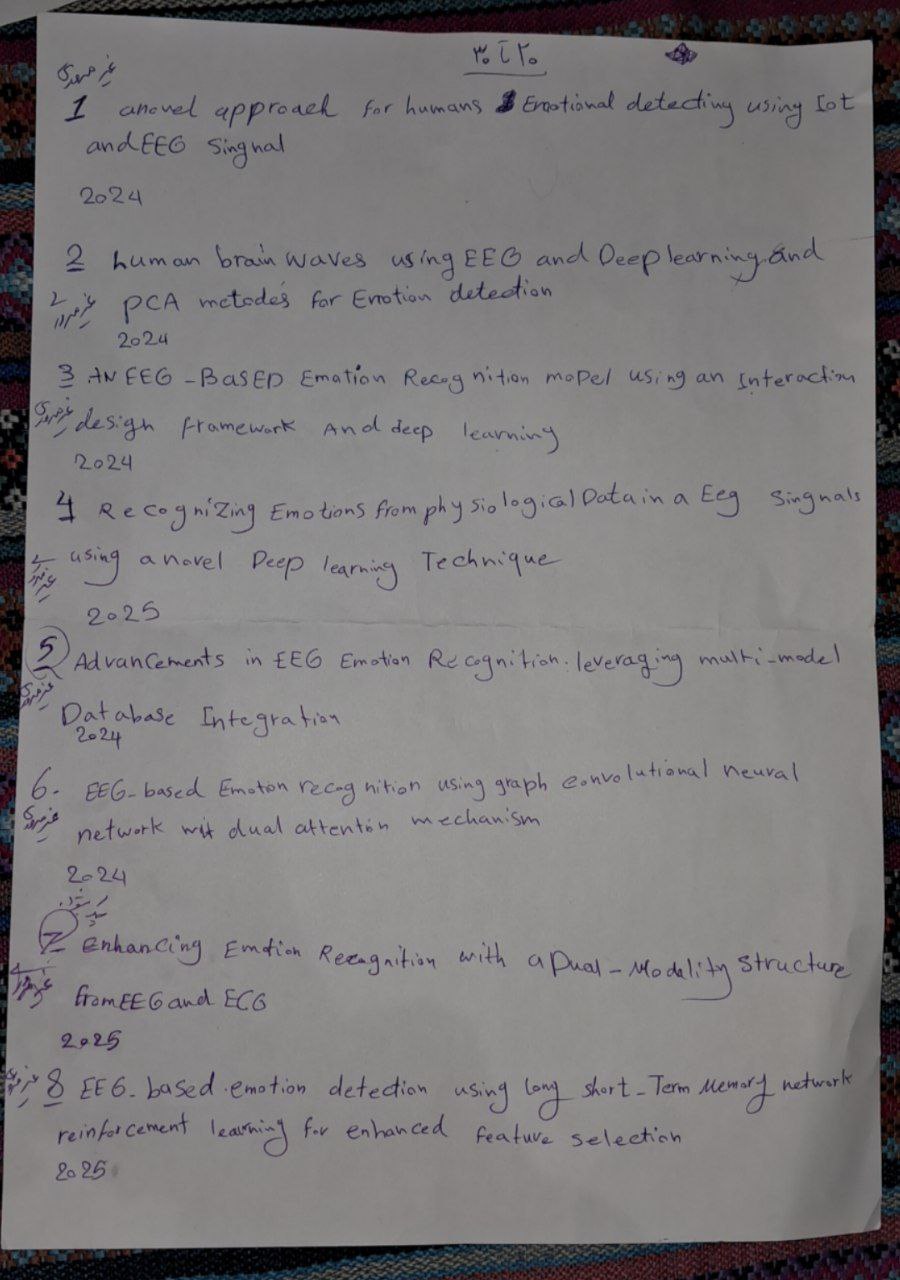 ۲۰ تا ۳۰
غیر ضروری
1 a novel approach for humans Emotional detecting using Iot
and EEG Singnal
2024
2 human brain waves using EEG and Deep learning and
PCA metodes for Emotion detection
2024
3 AN EEG - BASED Emation Recognition moDel using an Interaction
غیر ضروری
design framework And deep learning
2024
4 Recognizing Emotions from physiological Data in a Eeg Singnals
using a novel Deep learning Technique
2025
5 Advancements in EEG Emotion Recognition: leveraging multi-model
غیر ضروری
Database Integration
2024
6- EEG-based Emoton recognition using graph convolutional neural
غیر ضروری
network wit dual attention mechanism
2024
7 Enhancing Emotion Recognition with a Dual-Modality Structure
from EEG and ECG
2025
غیر ضروری
8 EEG-based-emotion detection using long short-Term Memory network
reinforcement learning for enhanced feature selection
2025